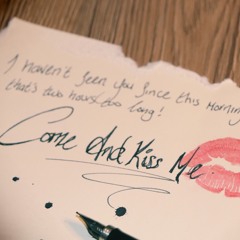 I haven't seen you since this Morning
that's two hours too long!
Come And Kiss Me.